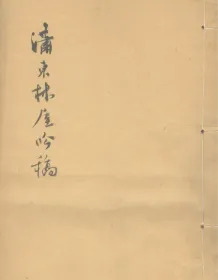 潇東林屋吟稿